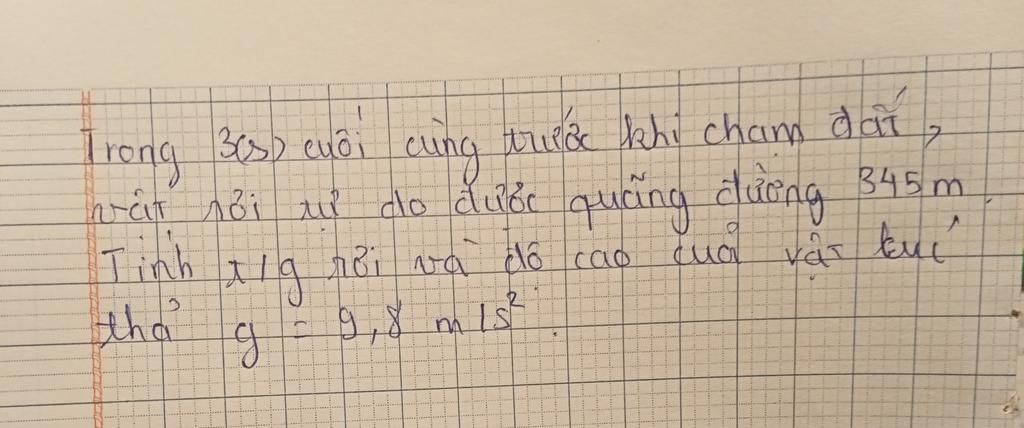 Trong 3(s) cuối cùng trước khi chạm đất,
vật rơi tự do được quãng đường 345m.
Tính t/g rơi và độ cao của vật lúc
thả g = 9,8 m/s²